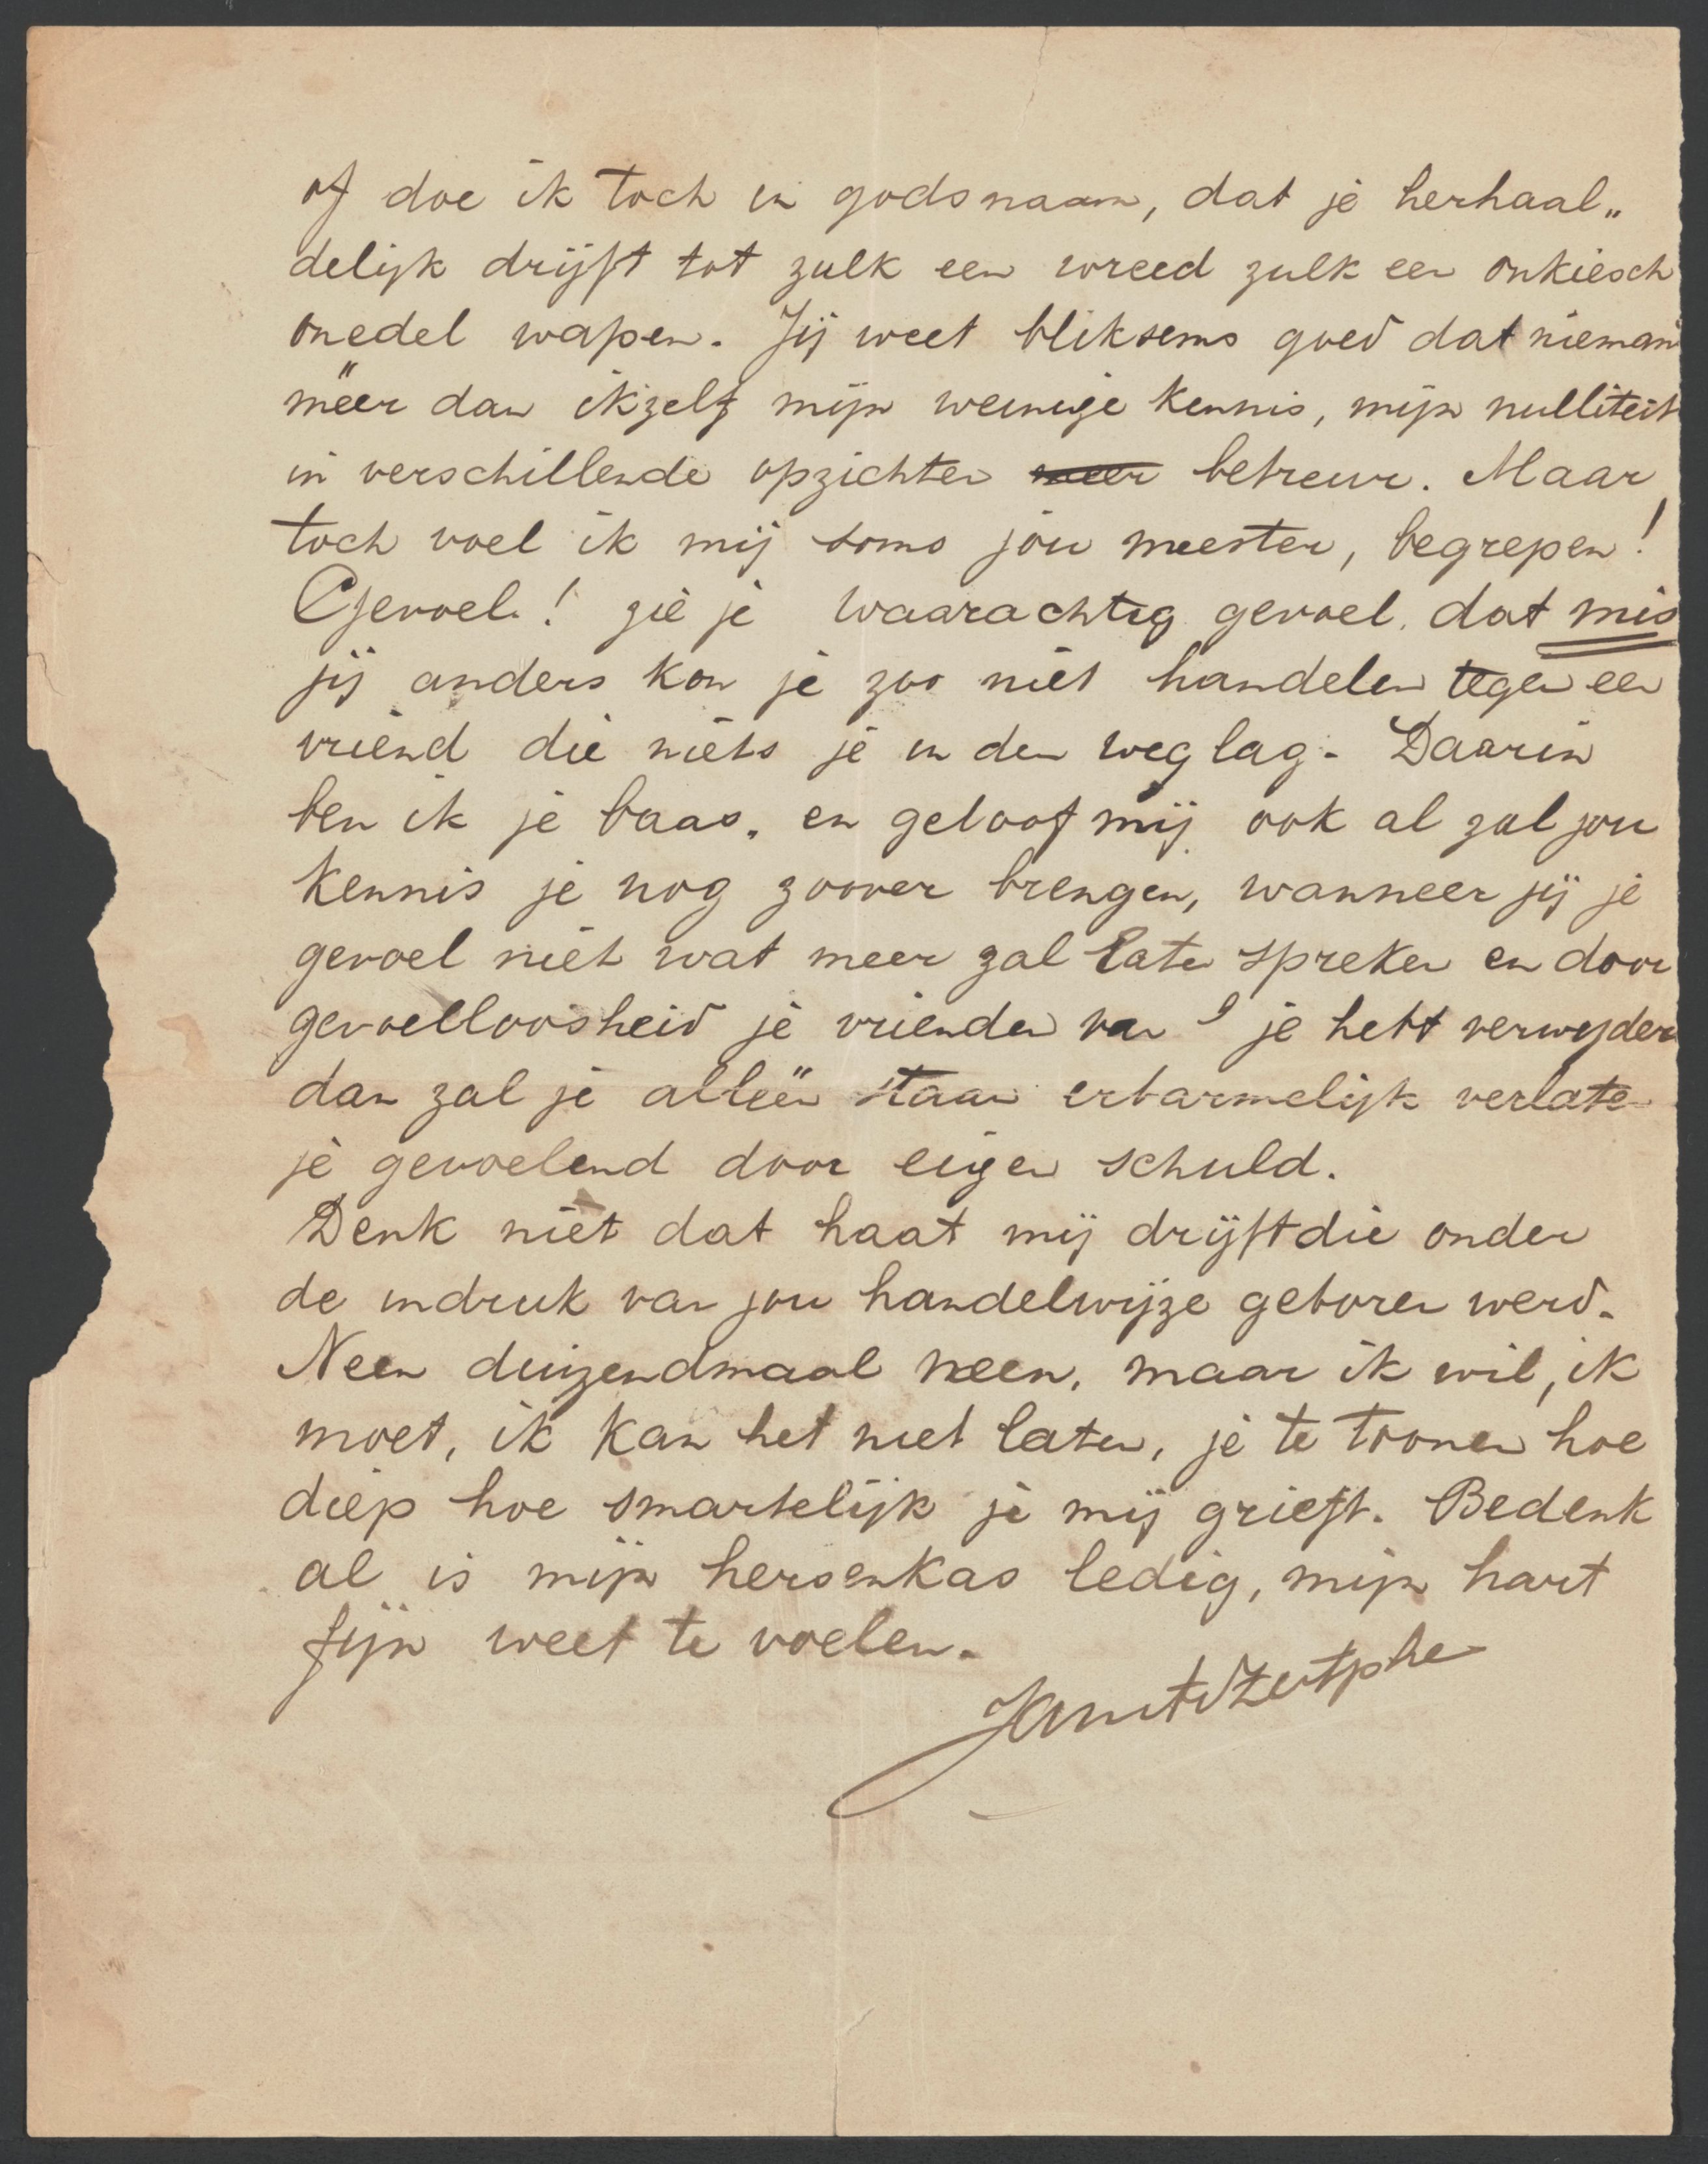 of doe ik toch in godsnaam, dat je herhaal„
delijk drijft tot zulk een wreed zulk een onkiesch
onedel wapen. Jij weet bliksems goed dat nieman
mëer dan ikzelf mijn weinige kennis, mijn nulliteit
in verschillende opzichten meer betreur. Maar
toch voel ik mij soms jou meester, begrepen!
Gevoel! zie je waarachtig gevoel. dat mis
jij anders kon je zoo niet handelen tegen een
vriend die niets je in den weg lag. Daarin
ben ik je baas. en geloof mij ook al zal jou
kennis je nog zoover brengen, wanneer jij je
gevoel niet wat meer zal laten spreken en door
gevoelloosheid je vrienden van je hebt verwijder
dan zal je allëen staan erbarmelijk verlaten
je gevoelend door eigen schuld.
Denk niet dat haat mij drijft die onder
de indruk van jou handelwijze geboren werd.
Neen duizendmaal neen, maar ik wil, ik
moet, ik kan het niet laten, je te toonen hoe
diep hoe smartelijk je mij grieft. Bedenk
al is mijn hersenkas ledig, mijn hart
fijn weet te voelen.